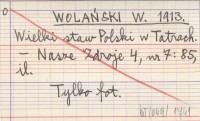 WOLAŃSKI W. 1413.
Wielki staw Polski w Tatrach.
— Nasze Zdroje 4, nr 7: 85,
il.
Tylko fot.